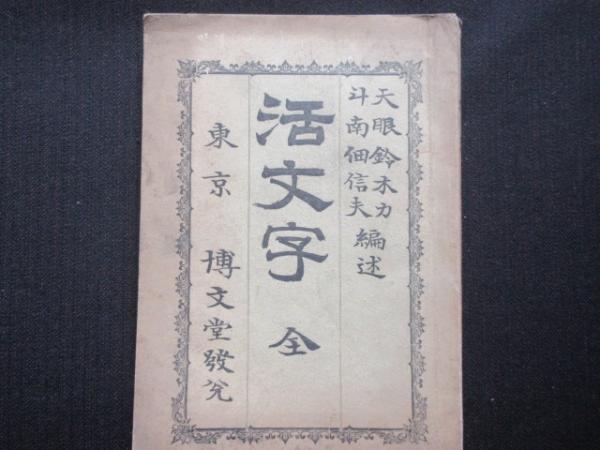 天眼鈴木力
斗南佃信夫
編述
活文字 全
東京 博文堂發兌